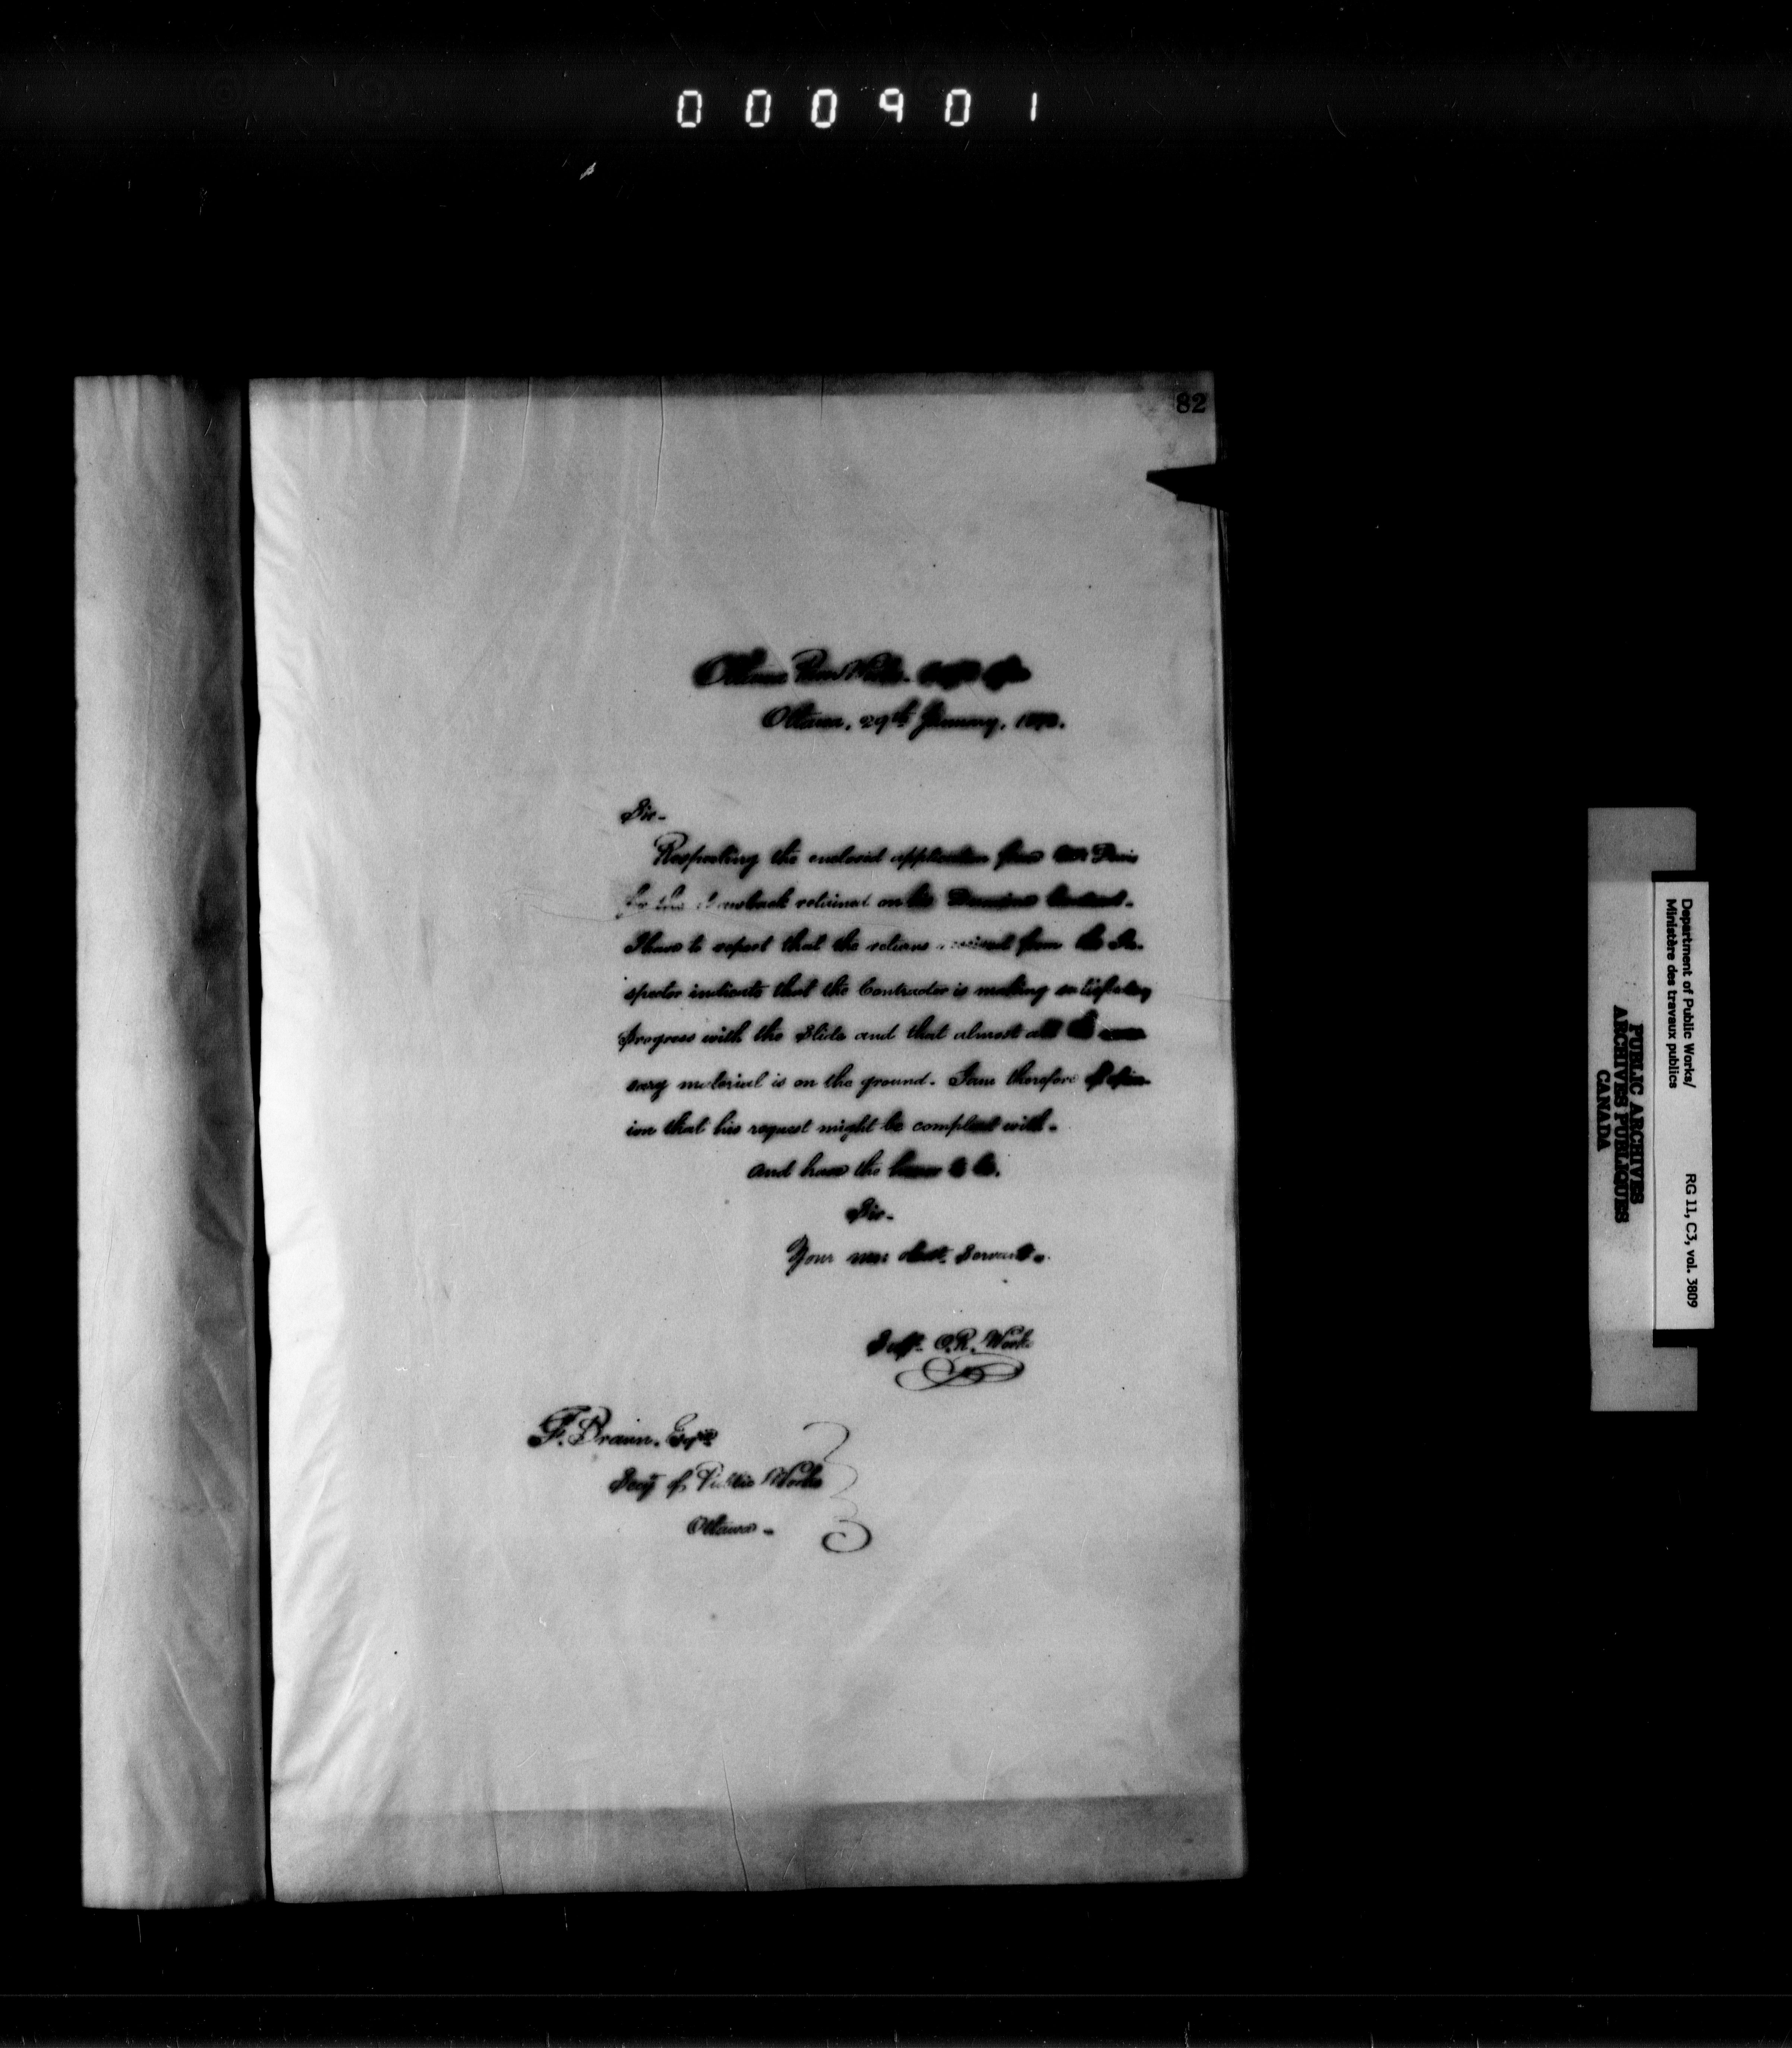 000901
82
Ottawa River Works.
Ottawa, 29th January, 187
Sir-
Respecting the enclosed application from Mr Davis
for the drawback retained on his
I have to report that the returns received from the In-
spector indicate that the Contractor is making satisfactory
progress with the Slide and that almost all the neces-
sary material is on the ground. I am therefore of opin-
ion that his request might be complied with-
and have the honor to be,
Sir-
Your obdt. Servant-
Supt. O.R. Works
F. Braun, Esqre
Secy of Public Works
Ottawa-
Department of Public Works/
Ministère des travaux publics
RG 11, C3, vol. 3809
PUBLIC ARCHIVES
ARCHIVES PUBLIQUES
CANADA